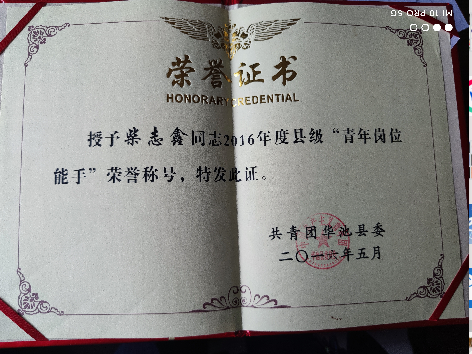 MI 10 PRO 5G
荣誉证书
HONORARY CREDENTIAL
授予柴志鑫同志2016年度县级“青年岗位
能手”荣誉称号，特发此证。
共青团华池县委
二〇一六年五月